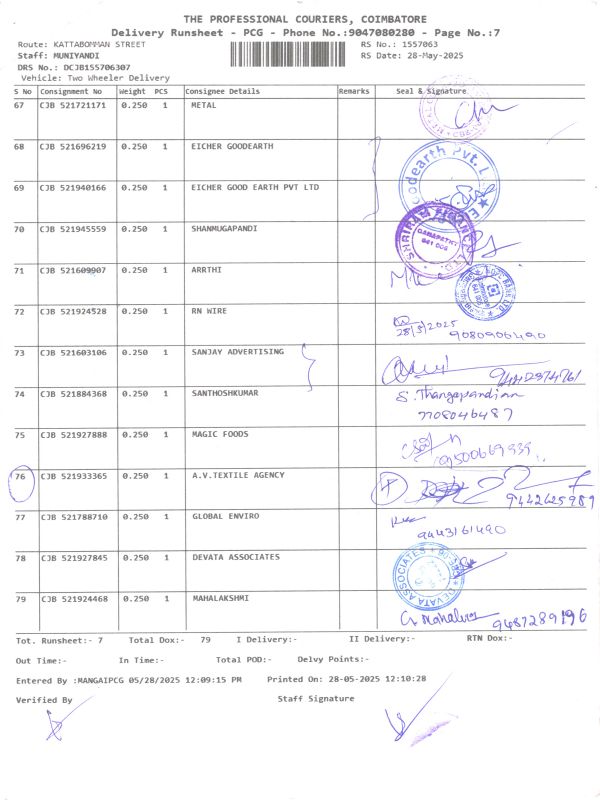 THE PROFESSIONAL COURIERS, COIMBATORE
Delivery Runsheet - PCG - Phone No.:9047080280 - Page No.:7
Route: KATTABOMMAN STREET RS No.: 1557063
Staff: MUNIYANDI RS Date: 28-May-2025
DRS No.: DCJB155706307
Vehicle: Two Wheeler Delivery
S No Consignment No Weight PCS Consignee Details Remarks Seal & Signature
67 CJB 521721171 0.250 1 METAL
68 CJB 521696219 0.250 1 EICHER GOODEARTH
oodearth Pvt. L
69 CJB 521940166 0.250 1 EICHER GOOD EARTH PVT LTD
70 CJB 521945559 0.250 1 SHANMUGAPANDI
SHRIRAM FINANCE LTD.
GANAPATHY
641 006
71 CJB 521609907 0.250 1 ARRTHI
72 CJB 521924528 0.250 1 RN WIRE
28/5/2025 9080906490
73 CJB 521603106 0.250 1 SANJAY ADVERTISING
9442374761
74 CJB 521884368 0.250 1 SANTHOSHKUMAR
S. Thangapandian
7708046487
75 CJB 521927888 0.250 1 MAGIC FOODS
9500669939
76 CJB 521933365 0.250 1 A.V.TEXTILE AGENCY
9442625989
77 CJB 521788710 0.250 1 GLOBAL ENVIRO
9443161490
78 CJB 521927845 0.250 1 DEVATA ASSOCIATES
DEVATA ASSOCIATES
79 CJB 521924468 0.250 1 MAHALAKSHMI
9487289196
Tot. Runsheet:- 7 Total Dox:- 79 I Delivery:- II Delivery:- RTN Dox:-
Out Time:- In Time:- Total POD:- Delvy Points:-
Entered By :MANGAIPCG 05/28/2025 12:09:15 PM Printed On: 28-05-2025 12:10:28
Verified By Staff Signature